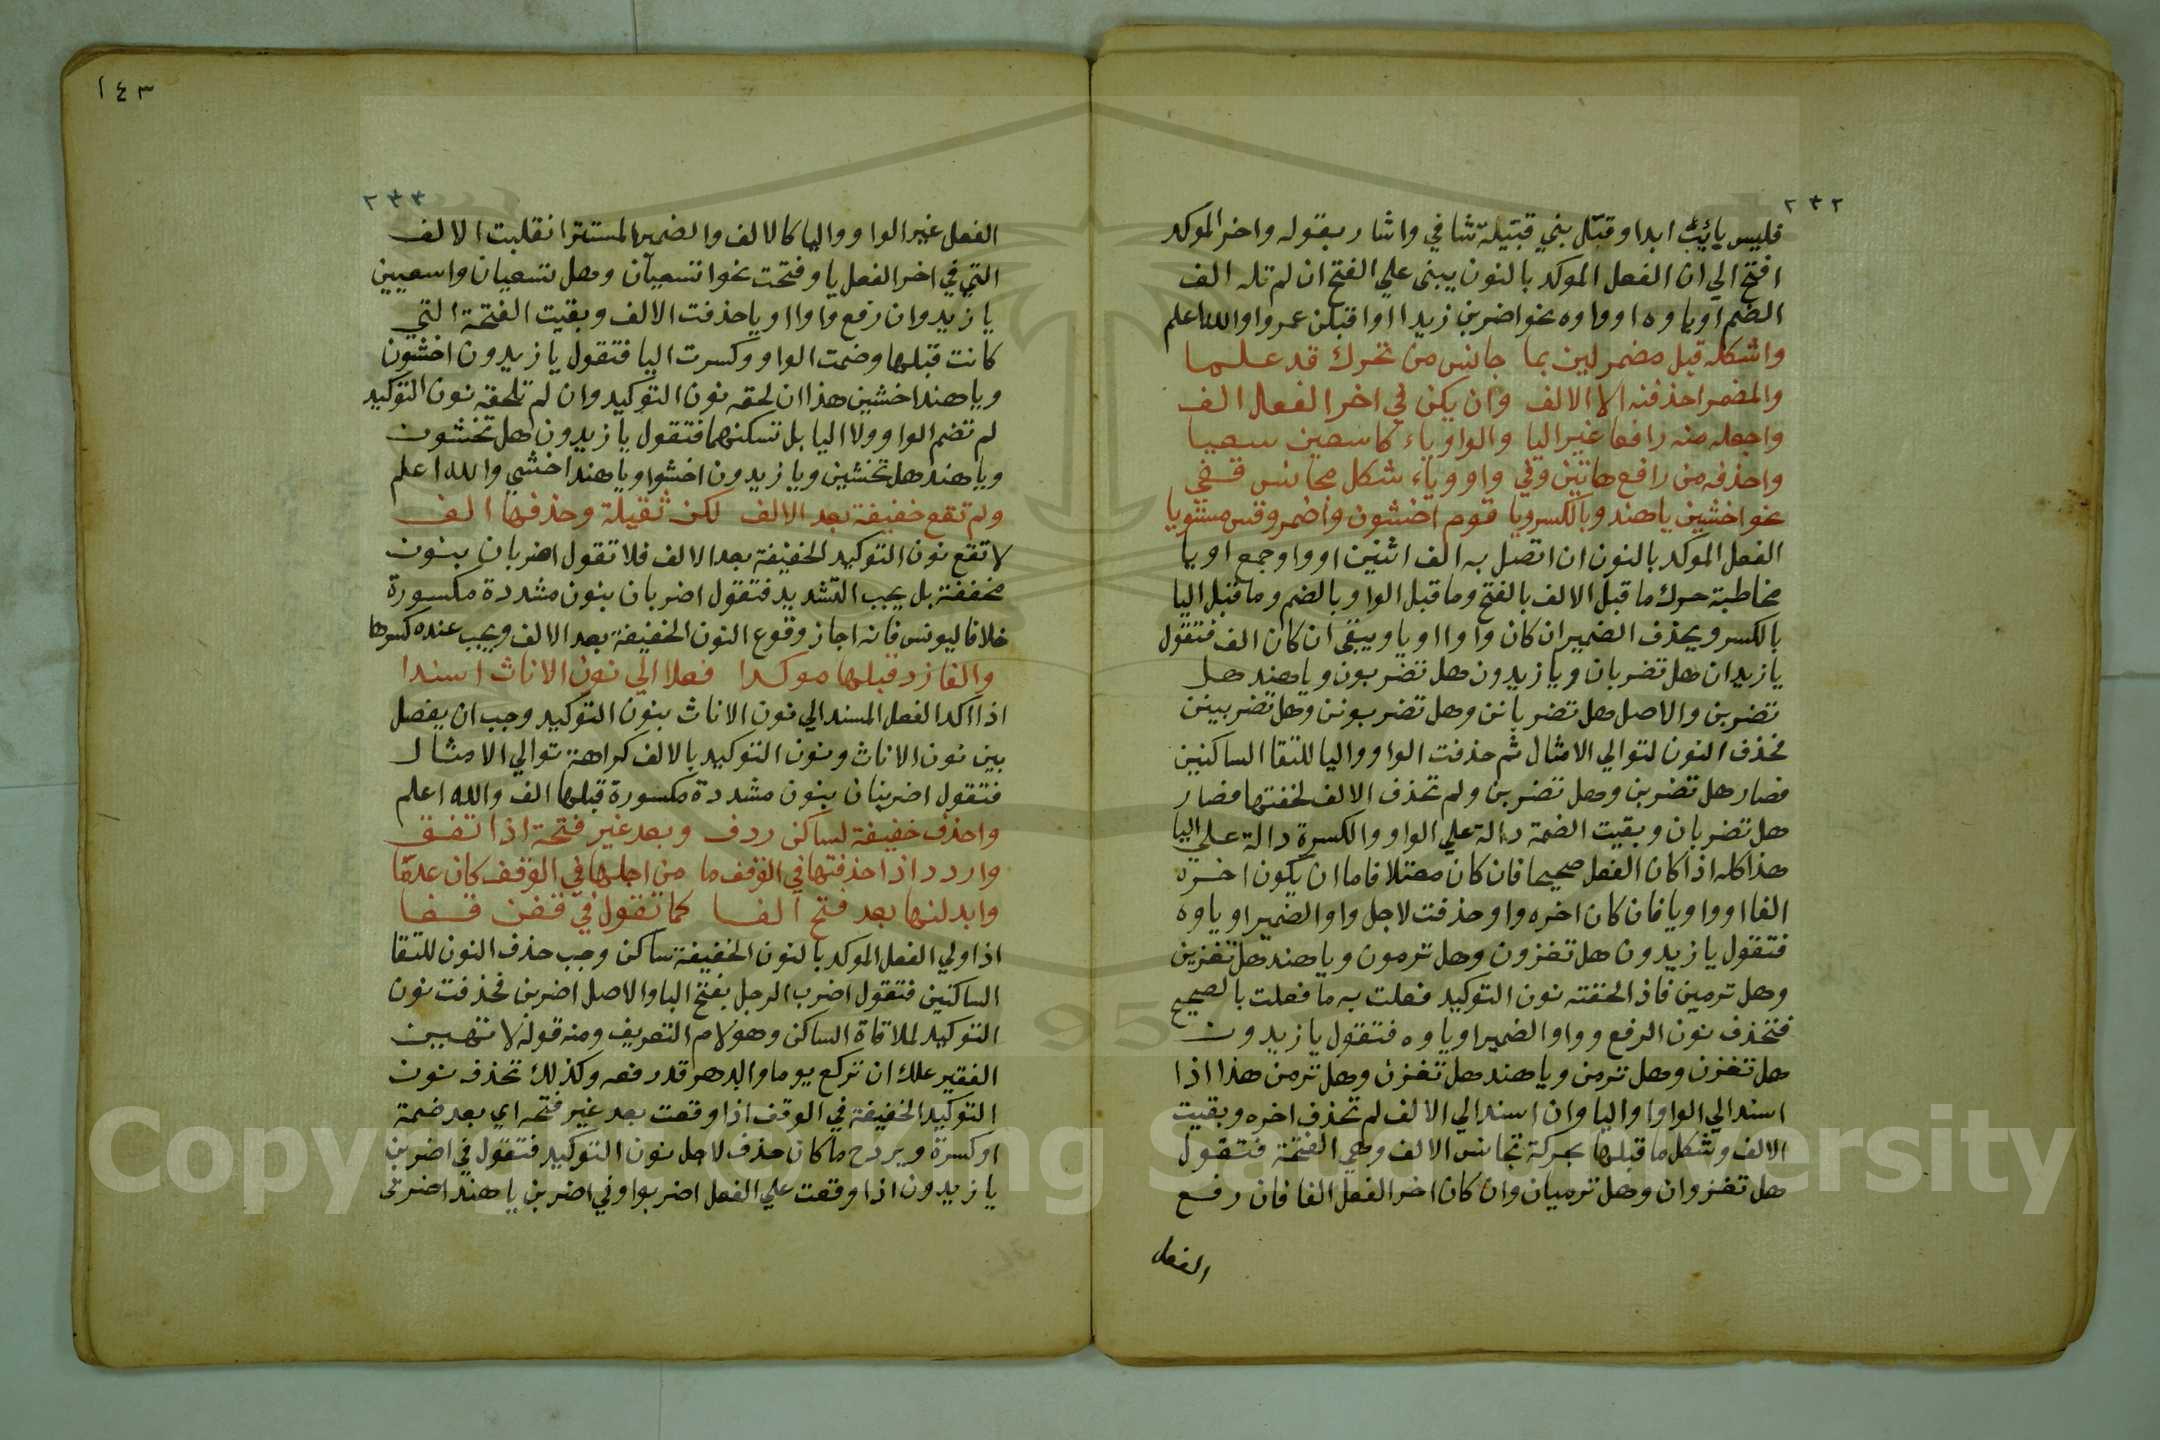 ٢٣٢
فليس يايٮ ابدا وقتل بني قتيلة شافي واشار بقوله واخر الموكد
افتح الي ان الفعل الموكد بالنون يبنى علي الفتح ان لم تله الف
الضم اوياوه او واوه نحو اضربن زيدا او اقتلن عمروا والله اعلم
واشكله قبل مضمر لين بما جانس من تحرك قد علما
والمضمر احذفنه الا الالف وان يكن في اخر الفعل الف
واجعله منه رافعا غير اليا والواو ياء كاسعين سعيا
واحذفه من رافع هاتين وفي واو وياء شكل مجانس قفي
نحو اخشين يا هند وبالكسر ويا قوم اخشون واضمر وقس مستويا
الفعل الموكد بالنون ان اتصل به الف اثنين او واو جمع او يا
مخاطبة حرك ما قبل الالف بالفتح وما قبل الواو بالضم وما قبل اليا
بالكسر ويحذف الضمير ان كان واوا او يا ويبقي ان كان الف فتقول
يا زيدان هل تضربان ويا زيدون هل تضربون ويا هند هل
تضربن والاصل هل تضربانن وهل تضربونن وهل تضربينن
فحذف النون لتوالي الامثال ثم حذفت الواو واليا للتقا الساكنين
فصار هل تضربن وهل تضربن ولم تحذف الالف لخفتها فصار
هل تضربان وبقيت الضمة دالة علي الواو والكسرة دالة علي اليا
هذا كله اذا كان الفعل صحيحا فان كان معتلا فاما ان يكون اخره
الفا او واو يا فان كان اخره واو حذفت لاجل واو الضمير او ياوه
فتقول يا زيدون هل تغزون وهل ترمون ويا هند هل تغزين
وهل ترمين فاذا لحقته نون التوكيد فعلت به ما فعلت بالصحيح
فتحذف نون الرفع وواو الضمير او ياوه فتقول يا زيدون
هل تغزن وهل ترمن ويا هند هل تغزن وهل ترمن هذا اذا
اسند الي الواو او اليا وان اسند الي الالف لم تحذف اخره وبقيت
الالف وشكل ما قبلها بحركة تجانس الالف وهي الفتحة فتقول
هل تغزوان وهل ترميان وان كان اخر الفعل الفا فان رفع
الفعل
١٤٣
٢٣٣
الفعل غير الواو واليا كالالف والضمير المستتر انقلبت الالف
التي في اخر الفعل يا وفتحت نحو اتسعيان وهل تسعيان واسعيين
يا زيد وان رفع واوا او يا حذفت الالف وبقيت الفتحة التي
كانت قبلها وضمت الواو وكسرت اليا فتقول يا زيدون اخشون
ويا هند اخشين هذا ان لحقه نون التوكيد وان لم تلحقه نون التوكيد
لم تضم الواو ولا اليا بل تسكنهما فتقول يا زيدون هل تخشون
ويا هند هل تخشين ويا زيدون اخشوا ويا هند اخشي والله اعلم
ولم تقع خفيفة بعد الالف لكن ثقيلة وحذفها الف
لا تقع نون التوكيد الخفيفة بعد الالف فلا تقول اضربان بنون
مخففة بل يجب التشديد فتقول اضربان بنون مشددة مكسورة
خلافا ليونس فانه اجاز وقوع النون الخفيفة بعد الالف ويجب عنده كسرها
والفا زد قبلها موكدا فعلا الي نون الاناث اسندا
اذا اكد الفعل المسند الي نون الاناث بنون التوكيد وجب ان يفصل
بين نون الاناث ونون التوكيد بالالف كراهة توالي الامثال
فتقول اضربنان بنون مشددة مكسورة قبلها الف والله اعلم
واحذف خفيفة لساكن ردف وبعد غير فتحة اذا تقف
واردد اذا حذفتها في الوقف ما من اجلها في الوقف كان علقا
وابدلنها بعد فتح الفا كما تقول في قفن قفا
اذا ولي الفعل الموكد بالنون الخفيفة ساكن وجب حذف النون للتقا
الساكنين فتقول اضرب الرجل بفتح البا والاصل اضربن فحذفت نون
التوكيد لملاقاة الساكن وهو لام التعريف ومنه قوله لا تهين
الفقير علك ان تركع يوما والدهر قد رفعه وكذلك تحذف نون
التوكيد الخفيفة في الوقف اذا وقعت بعد غير فتحه اي بعد ضمة
او كسرة ويرد ح ما كان حذف لاجل نون التوكيد فتقول في اضربن
يا زيدون اذا وقعت علي الفعل اضربوا وفي اضربن يا هند اضربي
Copyright © King Saud University
1957